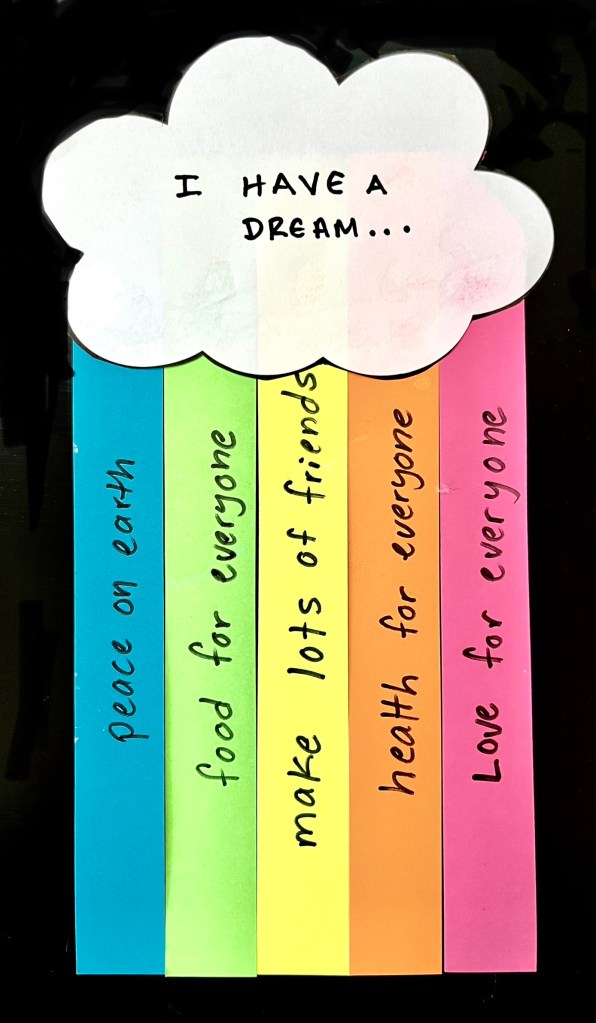 I HAVE A
DREAM...
peace on earth
food for everyone
make lots of friends
health for everyone
Love for everyone